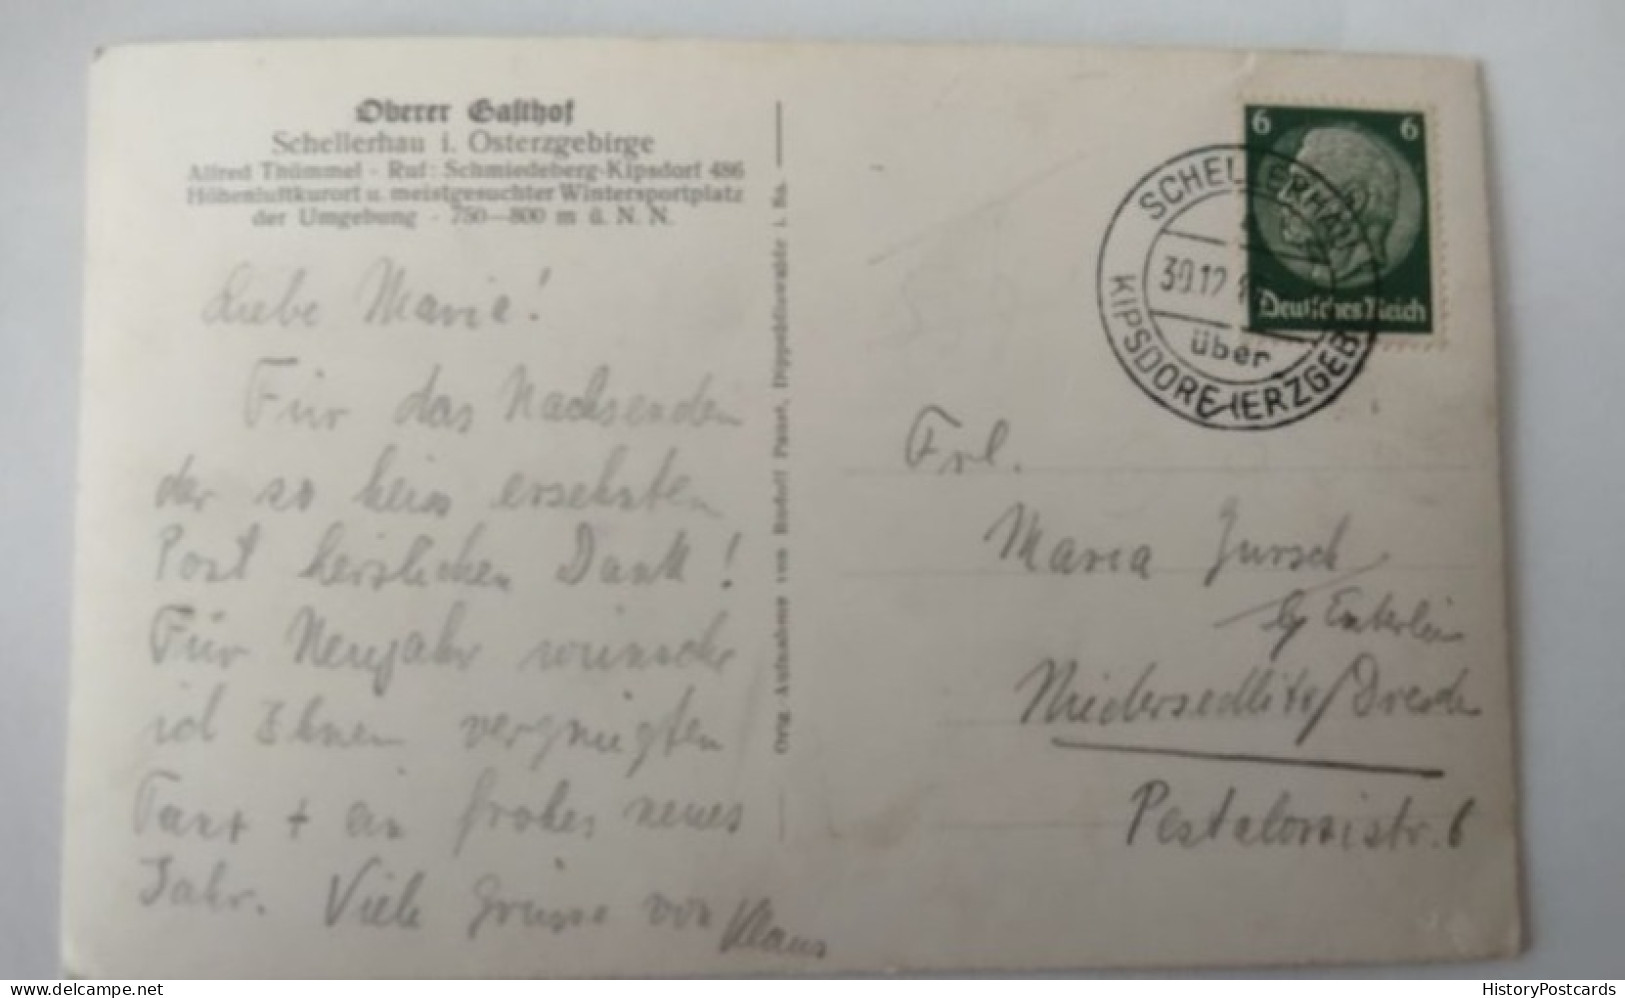 Oberer Gasthof
Schellerhau i. Osterzgebirge
Alfred Thümmel - Ruf: Schmiedeberg-Kipsdorf 486
Höhenluftkurort u. meistgesuchter Wintersportplatz
der Umgebung - 750—800 m ü. N. N.
Liebe Maria!
Für das Nachsenden
der so heiss ersehnten
Post herzlichen Dank!
Für Neujahr wünsche
ich Ihnen vergnügten
Tanz + ein frohes neues
Jahr. Viele Grüsse von Klaus
Org. Aufnahme von Rudolf Pauer, Dippoldiswalde i. Sa.
6 6
Deutsches Reich
SCHELLERHAU
30.12
über
KIPSDORF (ERZGEB
Frl.
Maria Jursch
Niedersedlitz/Dresden
Pestalozzistr. 6
HistoryPostcards
www.delcampe.net